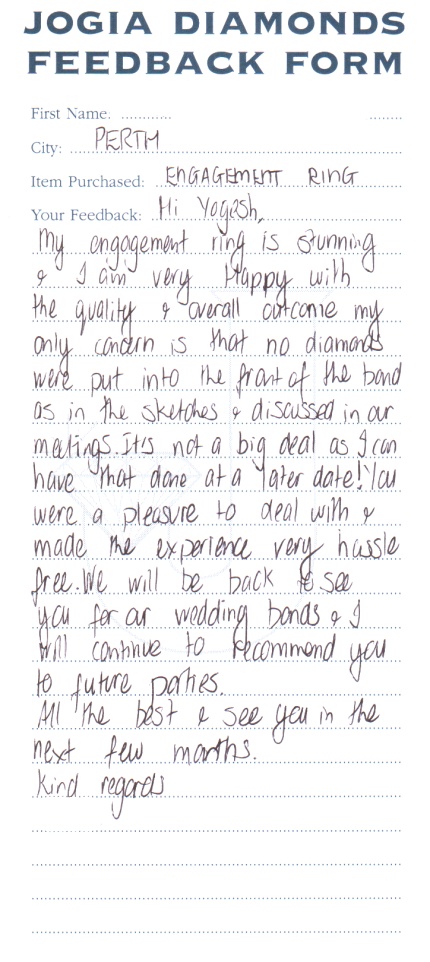 JOGIA DIAMONDS
FEEDBACK FORM
First Name: ............ ........
City: PERTH
Item Purchased: ENGAGEMENT RING
Your Feedback: Hi Yogesh,
My engagement ring is stunning
& I am very Happy with
the quality & overall outcome my
only concern is that no diamonds
were put into the front of the band
as in the sketches & discussed in our
meetings. It's not a big deal as I can
have that done at a later date! You
were a pleasure to deal with &
made the experience very hassle
free. We will be back to see
you for our wedding bands & I
will continue to recommend you
to future parties.
All the best & see you in the
next few months.
Kind regards